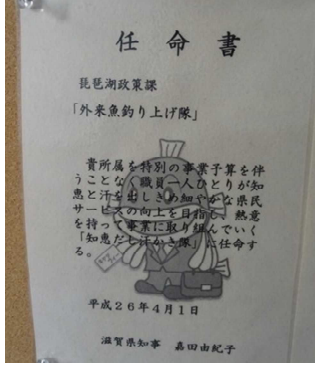 任命書
琵琶湖政策課
「外来魚釣り上げ隊」
貴所属を特別の事業予算を伴
うことなく職員一人ひとりが知
恵と汗を出しきめ細やかな県民
サービスの向上を目指し、熱意
を持って事業に取り組んでいく
「知恵だし汗かき隊」に任命す
る。
平成26年4月1日
滋賀県知事 嘉田由紀子